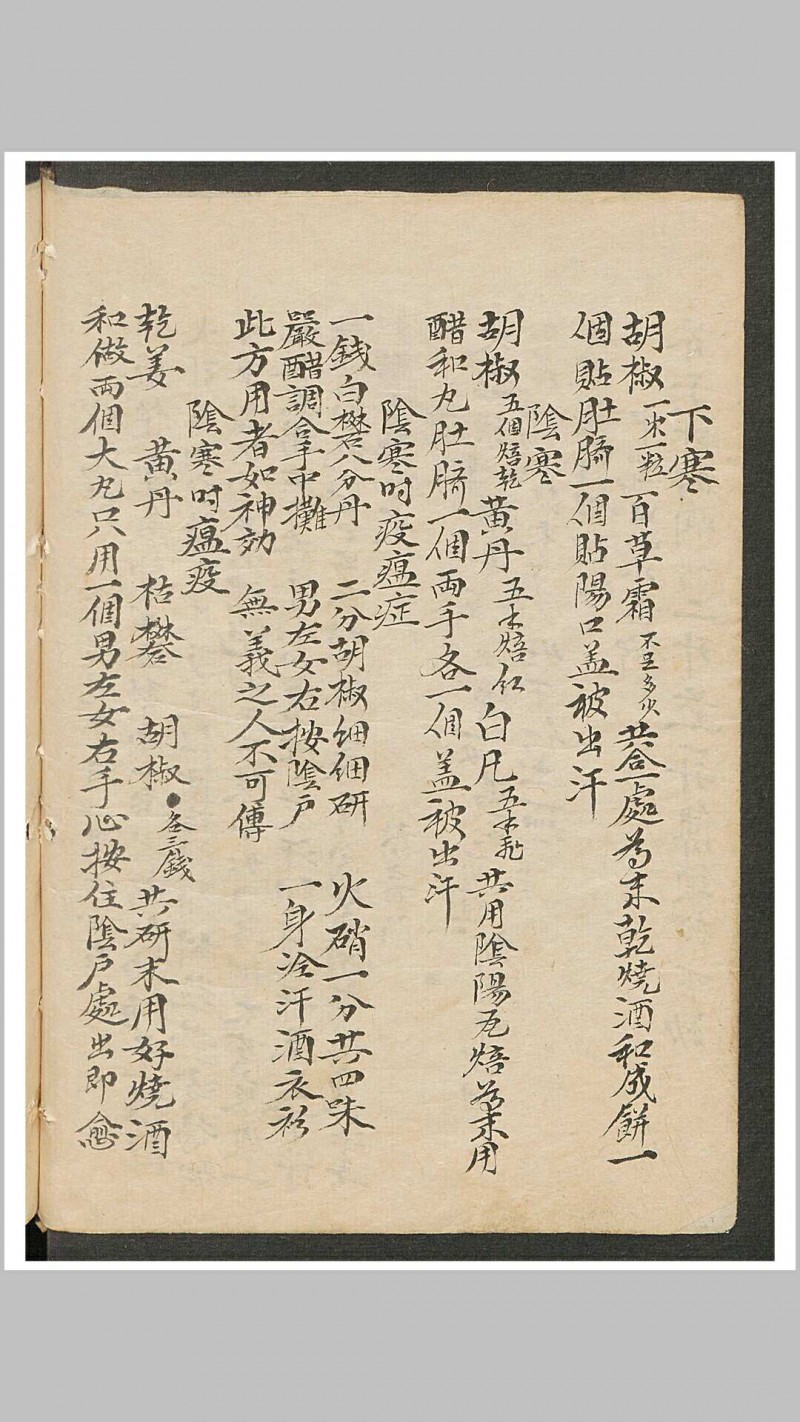 下寒
胡椒一歲一粒 百草霜不豆多少 共合一處為末乾燒酒和成餅一
個貼肚臍一個貼陽口盖被出汗
陰寒
胡椒五個焙乾 黄丹五木焙紅 白凡五木 共用陰陽瓦焙為末用
醋和丸肚臍一個両手各一個盖被出汗
陰寒时疫瘟症
一錢白礬八分丹 二分胡椒细细研 火硝一分共四味
嚴醋調合手中攤 男左女右按陰户 一身冷汗洒衣衫
此方用者如神効 無義之人不可傳
陰寒时瘟疫
乾姜 黄丹 枯礬 胡椒 各三錢 共研末用好燒酒
和做両個大丸只用一個男左女右手心按住陰户處出即愈